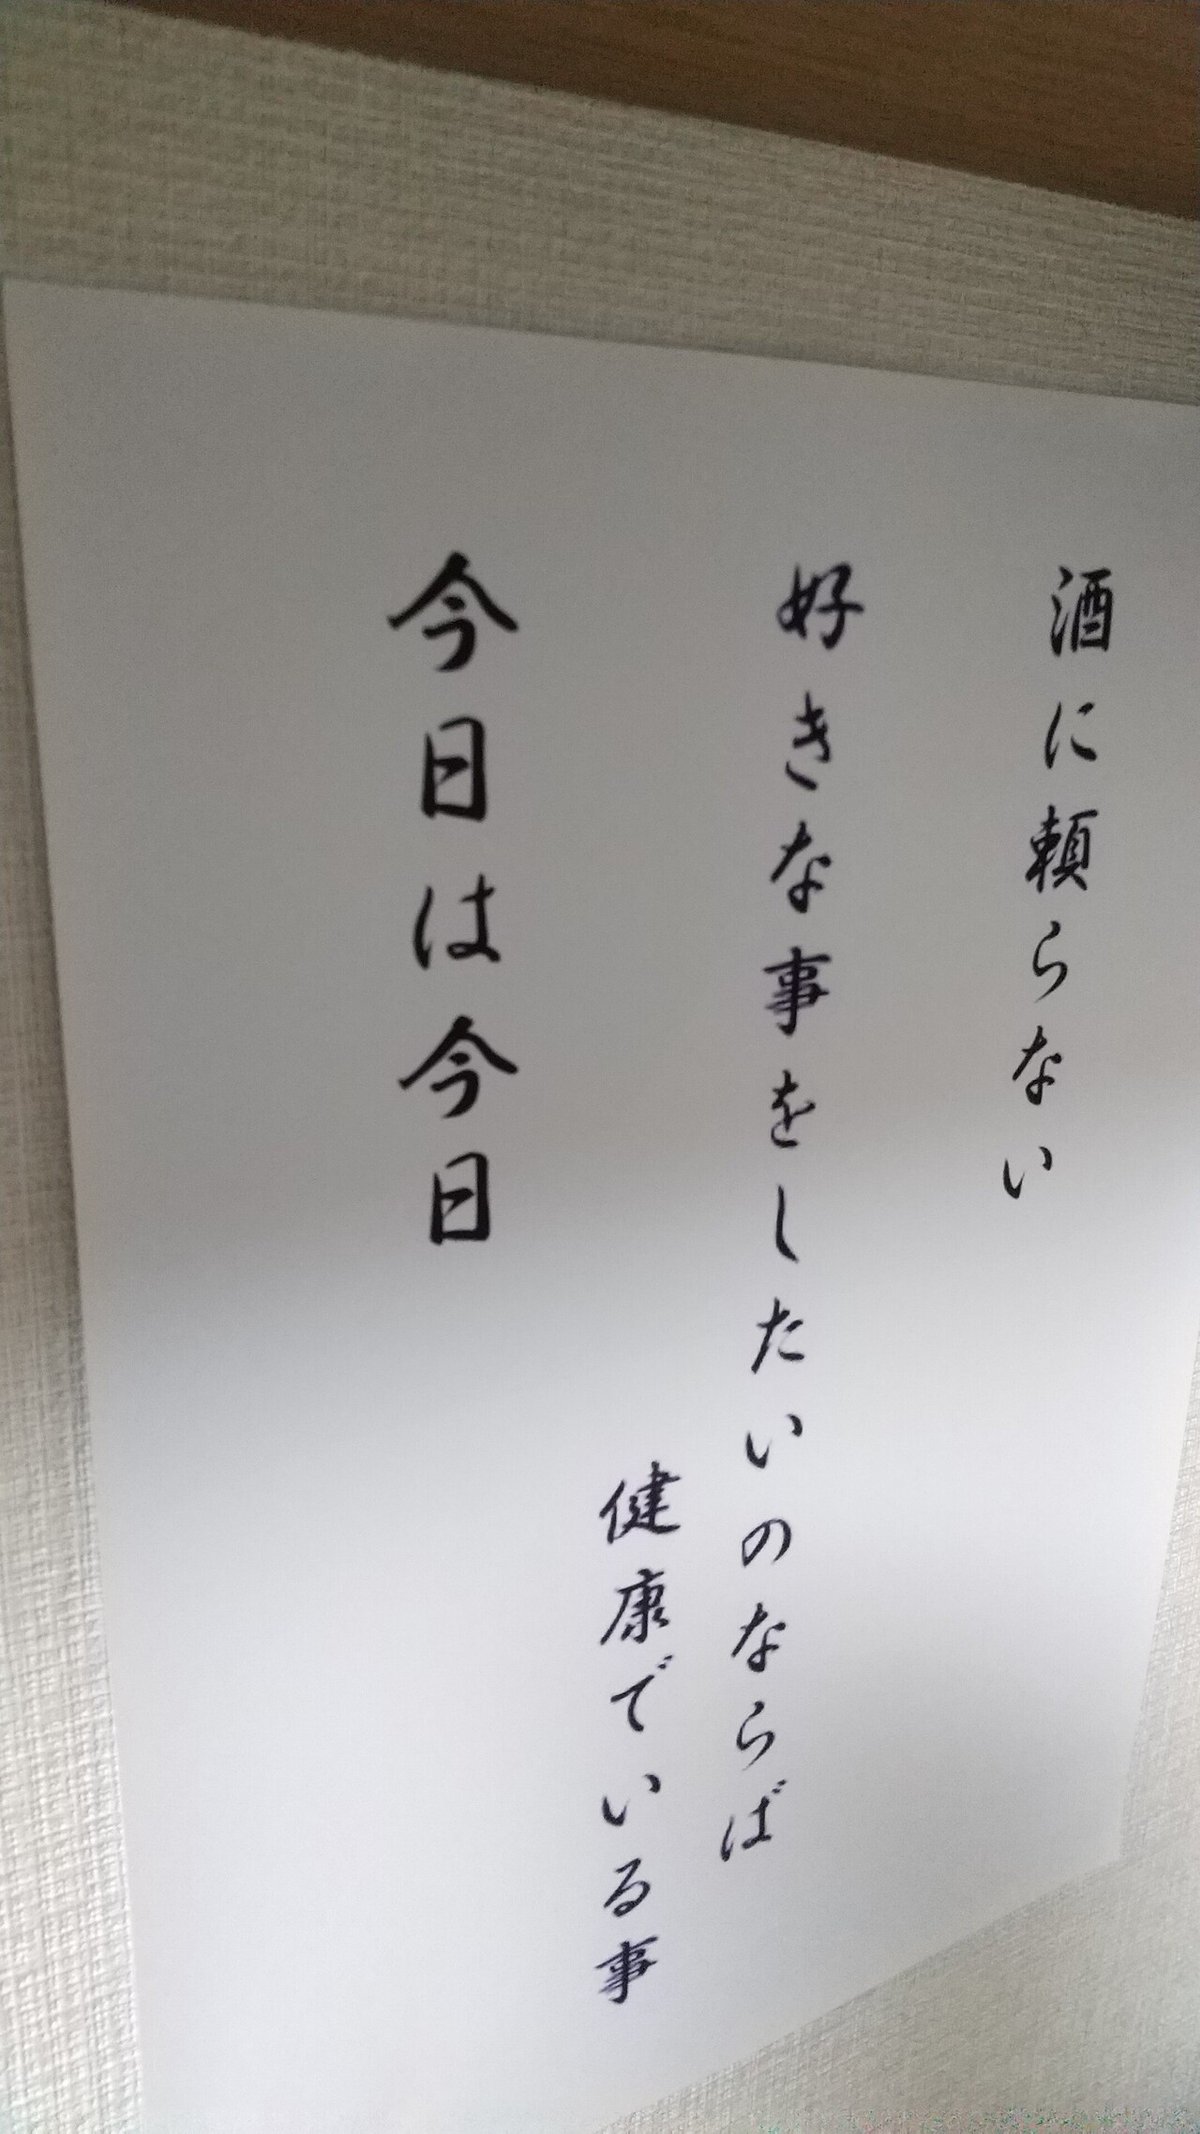 酒に頼らない
好きな事をしたいのならば
健康でいる事
今日は今日